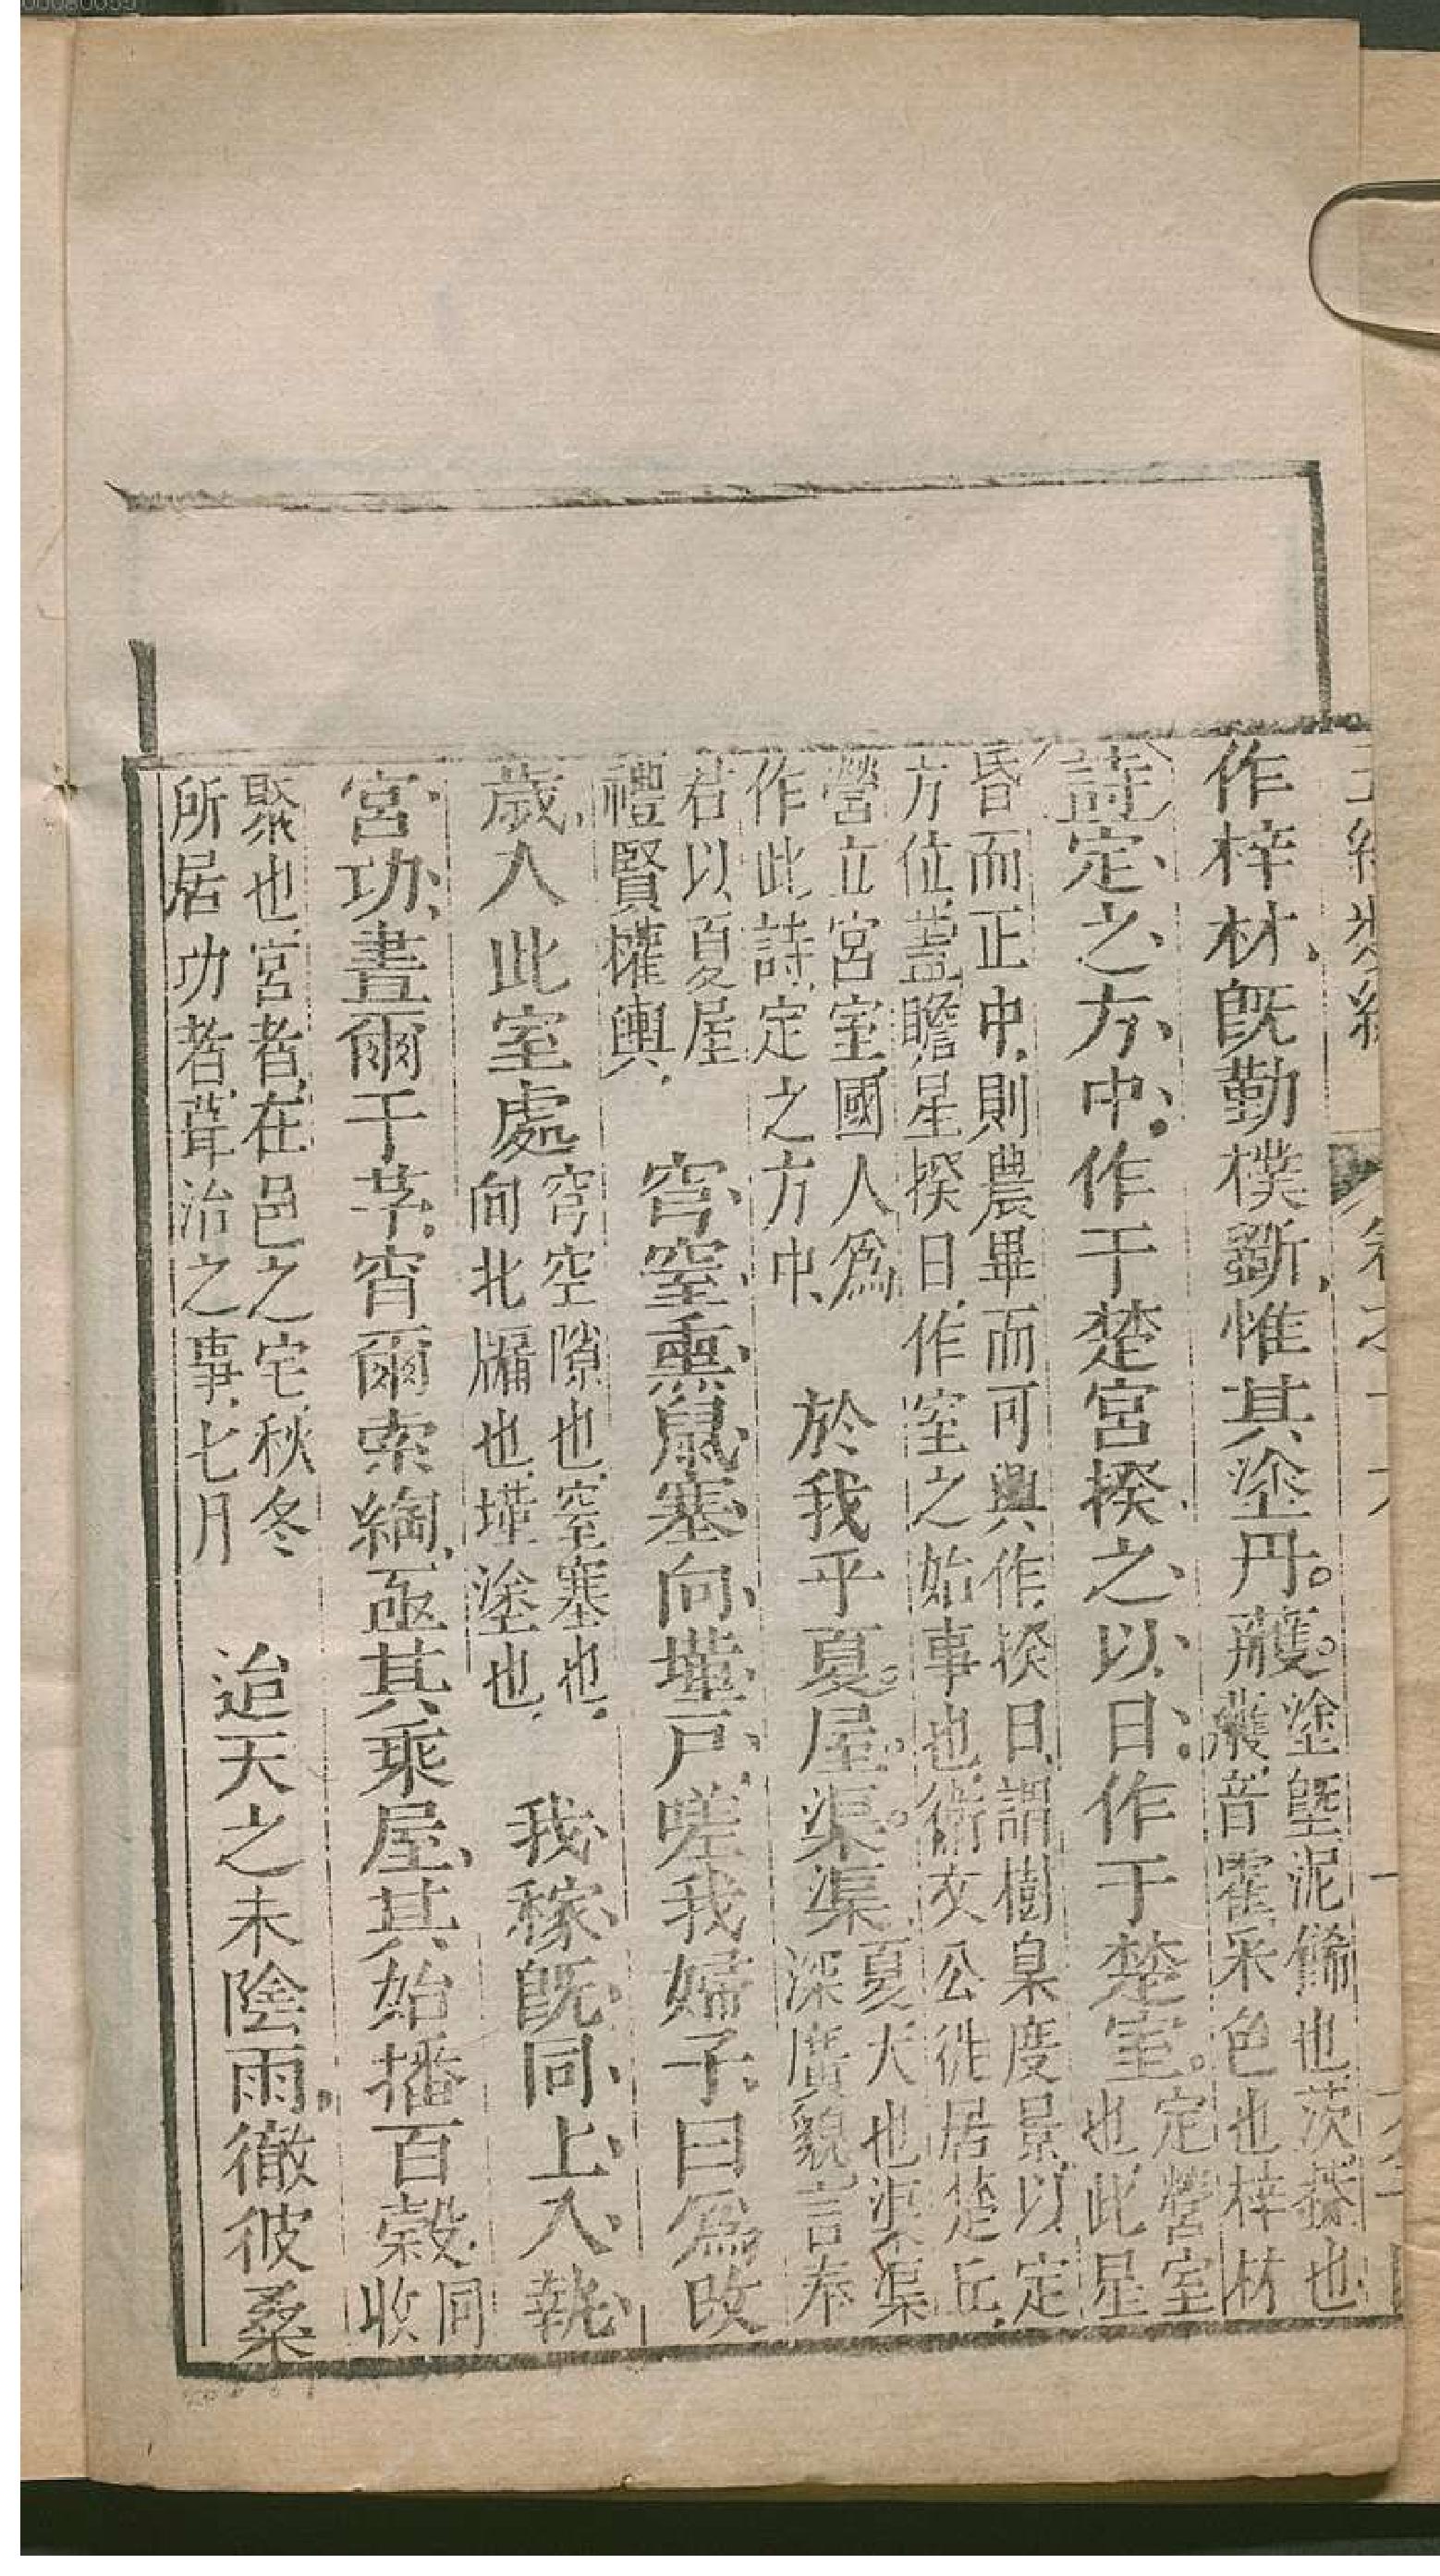 作梓材既勤樸斲惟其塗丹雘
塗塈泥餙也茨葢也
音霍采色也梓材
詩定之方中作于楚宮揆之以日作于楚室
定營室
也此星
昏而正中則農畢而可興作揆日謂樹臬度景以定
方位葢瞻星揆日作室之始事也衛文公徙居楚丘
營立宮室國人爲
作此詩定之方中
於我乎夏屋渠渠
夏大也渠渠
深廣貌言奉
君以夏屋
禮賢權輿
穹窒熏鼠塞向墐戶嗟我婦子曰爲改
歲入此室處
穹空隙也窒塞也
向北牖也墐塗也
我稼既同上入執
宮功晝爾于茅宵爾索綯亟其乘屋其始播百穀
同
收
聚也宮者在邑之宅秋冬
所居功者葺治之事七月
迨天之未陰雨徹彼桑